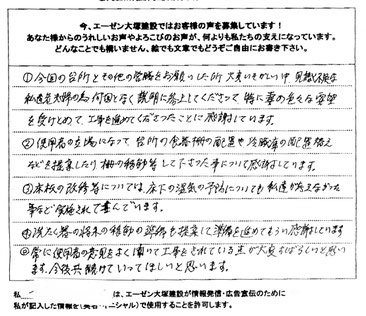 今、エーゼン大塚建設ではお客様の声を募集しています！
あなた様からのうれしいお声やよろこびのお声が、何よりも私たちの支えになっています。
どんなことでも構いません、絵でも文章でもどうぞご自由にお書き下さい。
①今回の台所とその他の修繕をお願いした所 大変いそがしい中、
私達老夫婦の為 何回となく説明に参上してくださって 特に妻の色々な要望
を受けとめて、工事を進めてくださったことに感謝しています。
②使用者の立場になって 台所の食器棚の配置や冷蔵庫の配置替え
などを提案したり 棚の移動等して下さった事について感謝しています。
③床板の改修等については、床下の湿気の予防についても 私達が
事など実施されて喜んでいます。
提案して準備を進めてもらい感謝しています
◎常に使用者の意見をよく聞いて工事をされている点が大変すばらしいと思い
ます。今後共続けていってほしいと思います。
私 は、エーゼン大塚建設が情報発信・広告宣伝のために
私が記入した情報を イニシャル）で使用することを許可します。